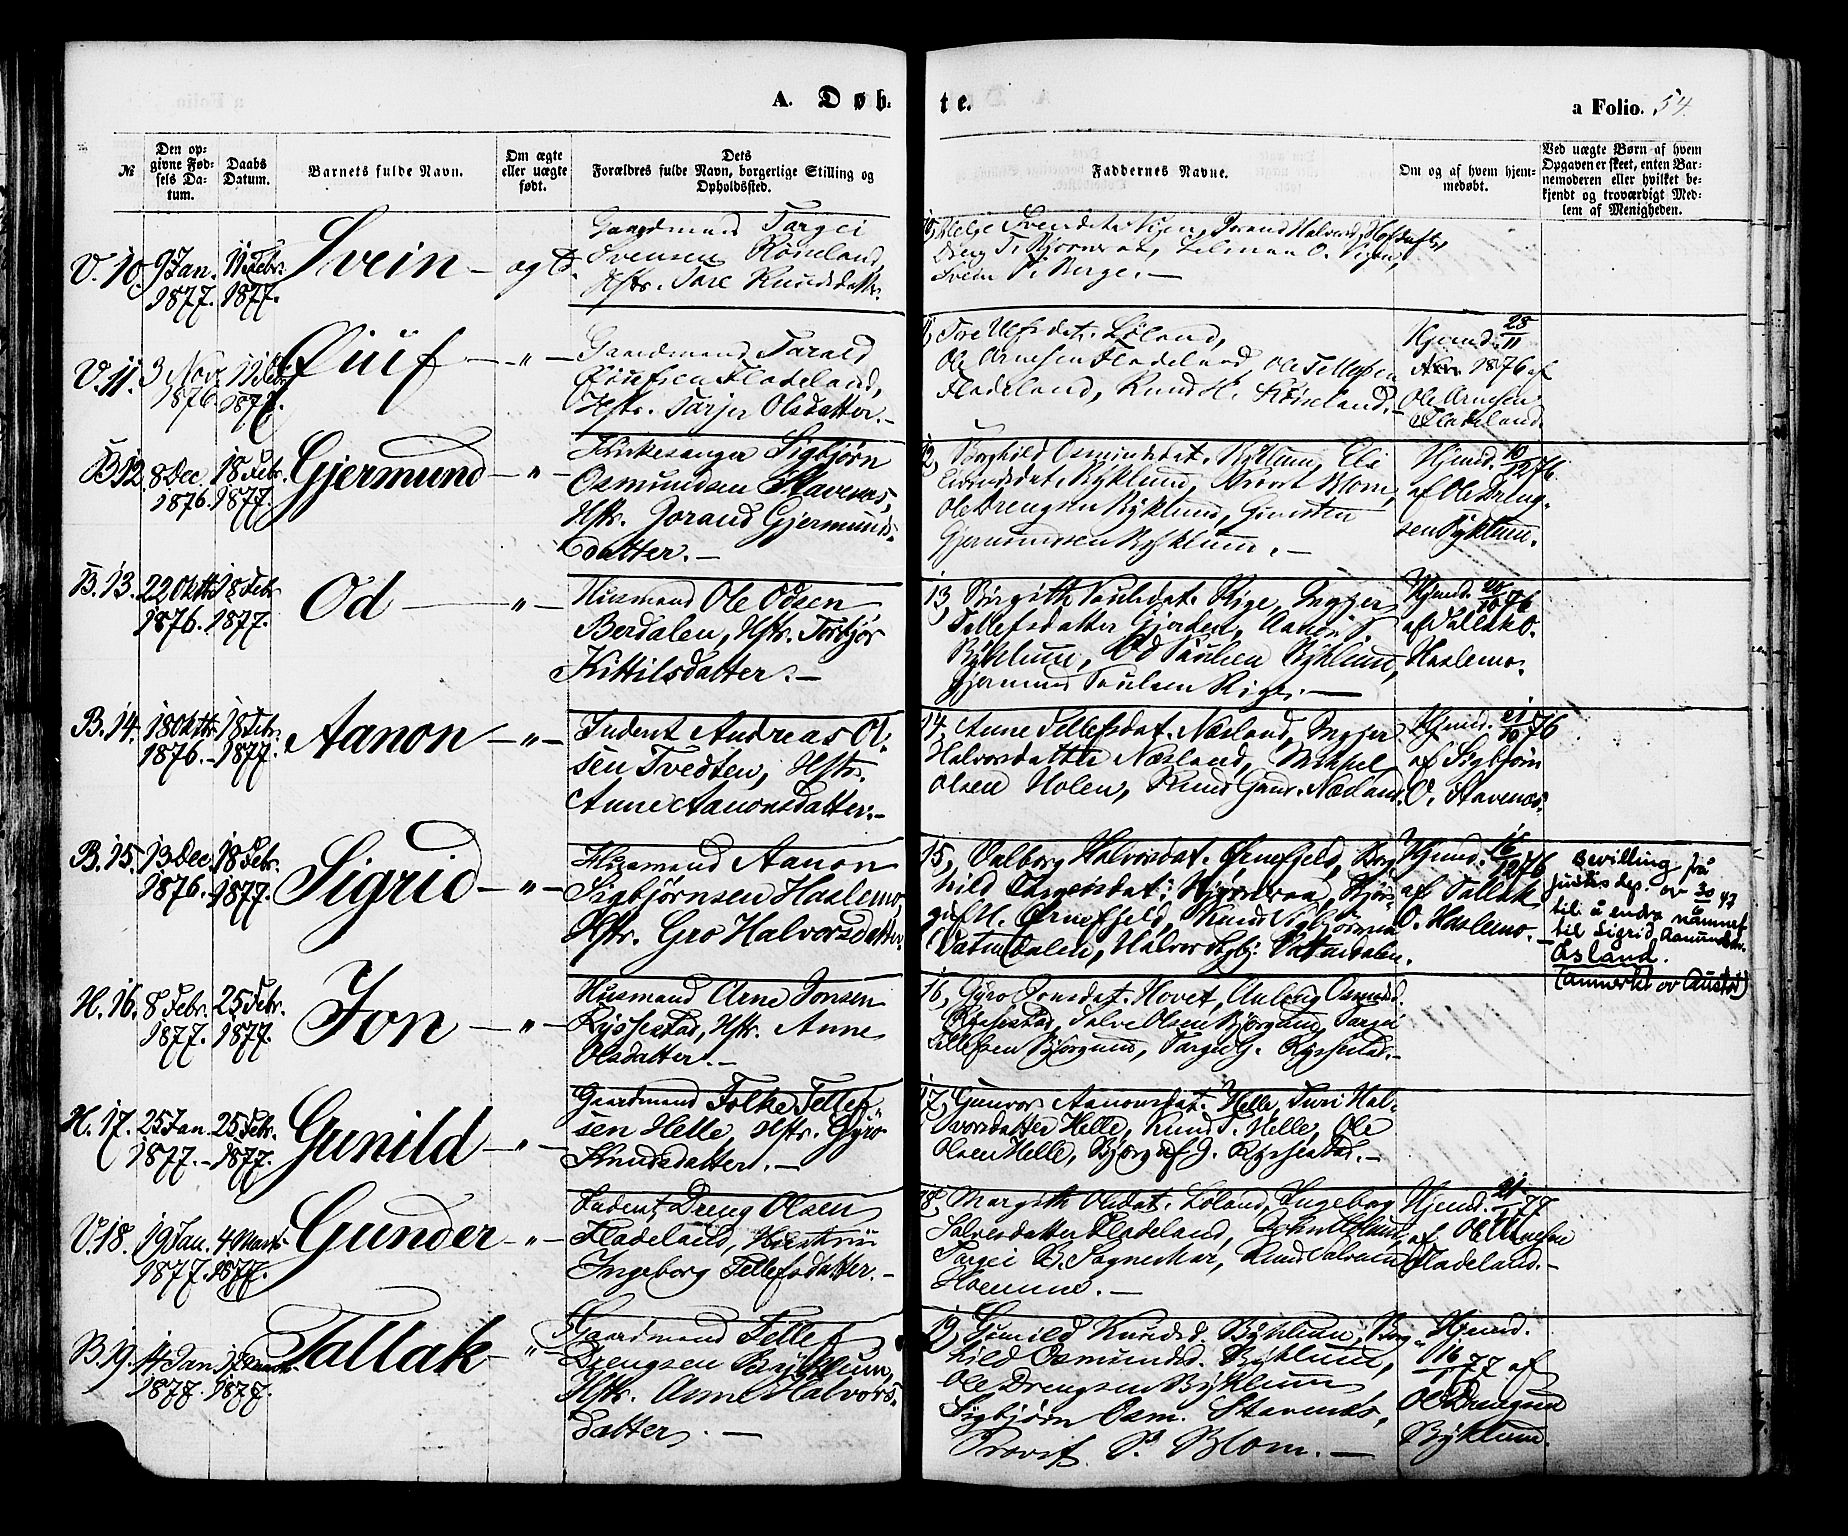 A. Døb-
te.
a Folio. 54.
№
Den op-
givne Fød-
sels Da-
tum.
Daabs
Datum.
Barnets fulde Navn.
Om ægte
eller uægte
født.
Dets
Forældres fulde Navn, borgerlige Stilling og
Opholdssted.
Faddernes Navne.
Om og af hvem hjem-
medøbt.
Ved uægte Børn af hvem
Opgaven er skeet, enten Bar-
nemoderen eller hvilket be-
kjendt og troværdigt Med-
lem af Menigheden.
V. 10. 9 Jan. 1877. 11 Febr. 1877. Svein – ægte.
Gaardmand Targei
Svensen Røiseland,
Hstr. Tore Knudsdatter.
Svein T. Berge. –
V. 11. 3 Nov. 1876. 11 Febr. 1877. – " –
Gaardmand Tarald
Fladeland,
Hstr. Tarjer Olsdatter. –
11, Tre Ulfsdat. Løland,
Ole Arnesen Fladeland, Ole Tellefsen
Fladeland, Knud H. Røiseland. –
Hjemd. 28/11
1876 af
Ole Arnesen
Fladeland.
B. 12. 8 Dec. 1876. 18 Febr. 1877. Gjermund – " –
Kirkesanger Sigbjørn
Osmundsen Stavenes,
Hstr. Jorand Gjermunds-
datter. –
12, Borghild Osmundsdat. Byklum,
Byklund, Blom,
Ole Drengsen Byklund, Gunsten
Gjermundsen Byklum. –
Hjemd. 10/12 76
af Ole Dreng-
sen Byklum.
B. 13. 22 Oktbr. 1876. 18 Febr. 1877. Od – " –
Husmand Ole Odsen
Berdalen, Hstr. Torbjør
Kittilsdatter. –
13, Birgith Paulsdat. Rige, Ingjer
Tellefsdatter Gjerden, Aanon T.
Byklum, Od Paulsen Byklum,
Gjermund Paulsen Rige. –
Hjemd. 76
af Tallak O.
Haslemo.
B. 14. 18 Oktbr. 1876. – 18 Febr. 1877. Aanon – " –
Inderst Andreas Ol-
sen Tvedten, Hstr.
Anne Aanonsdatter. –
14, Anne Tellefsdat. Næsland, Ingjer
Halvorsdatter Næsland, Mikkel
Olsen Holen, Knud Gund. Næsland.
Hjemd. 21/10 76
af Sigbjørn
O. Stavenæs.
B. 15. 13 Dec. 1876. 18 Febr. 1877. Sigrid – " –
Husmand Aanon
Sigbjørnsen Haslemo,
Hstr. Gro Halvorsdatter.
15, Valborg Halvorsdat. Ørnefjeld, Borg-
hild Targeisdat. Bjør-
gulf H. Ørnefjeld, Knud Sigbjørnsen
Vatnedalen, Halvor Sigbj. Vatnedalen.
Hjemd. 16/12 76
af Tallak
O. Haslemo. –
Bevilling frå
justisdep. av 47
til å endra namnet
til Sigrid Aamundsen
Åsland.
(anmerket av Austad)
H. 16. 8 Febr. 1877. 25 Febr. 1877. Jon – " –
Husmand Arne Jonsen
Rysstad, Hstr. Anne
Olsdatter. –
16, Gyro Jonsdat. Hovet, Anlaug Osmds.
Rysstad, Salve Olsen Bjørgum, Targei
Tellefsen Bjørgum, Targei J. Rysstad. –
H. 17. 25 Jan. 1877. – 25 Febr. 1877. Gunild – " –
Gaardmand Folke Tellef-
sen Helle, Hstr. Gyro
Knudsdatter. –
17, Gunvor Aanonsdat. Helle, Turi Hal-
vorsdatter Helle, Knud T. Helle, Ole
Olsen Helle, Bjørgulf G. Rysstad. –
V. 18. 19 Jan. 1877. 4 Marts 1877. Gunder – " –
Inderst Dreng Olsen
Fladeland, Hustru
Ingeborg Tellefsdatter. –
18, Margith Olsdat. Løland, Ingeborg
Salvesdatter Fladeland,
Targei B. Sagneskar, Knud Salvesen
Homme. –
Hjemd. 21/1 77
af Ole Arnesen
Fladeland. –
B. 19. 14 Jan. 1877. 1877. Tallak – " –
Gaardmand Tellef
Drengsen Byklum,
Hstr. Anne Halvors-
datter. –
19, Gunild Knudsd. Byklum, Borg-
hild Osmundsd. Byklum,
Ole Drengsen Byklum
Sigbjørn Osm. Stavenæs,
Provst P. Blom. –
Hjemd.
16/1 77 af
Ole Drengsen
Byklum.